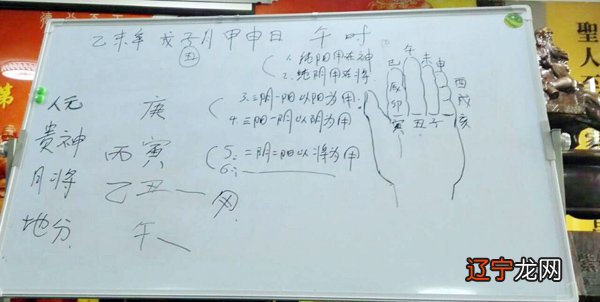 乙未年 戊子月 甲申日 午时
丑
1. 纯阳用在神
2. 纯阴用在将
3. 三阴一阳以阳为用.
4. 三阳一阴以阴为用
5. 二阴二阳以将为用
6.
人元 庚
贵神 丙寅
月将 乙丑
地分 午
巳 午 未 申
辰 酉
卯 戌
寅 丑 子 亥
聖人
第
辽宁龙网